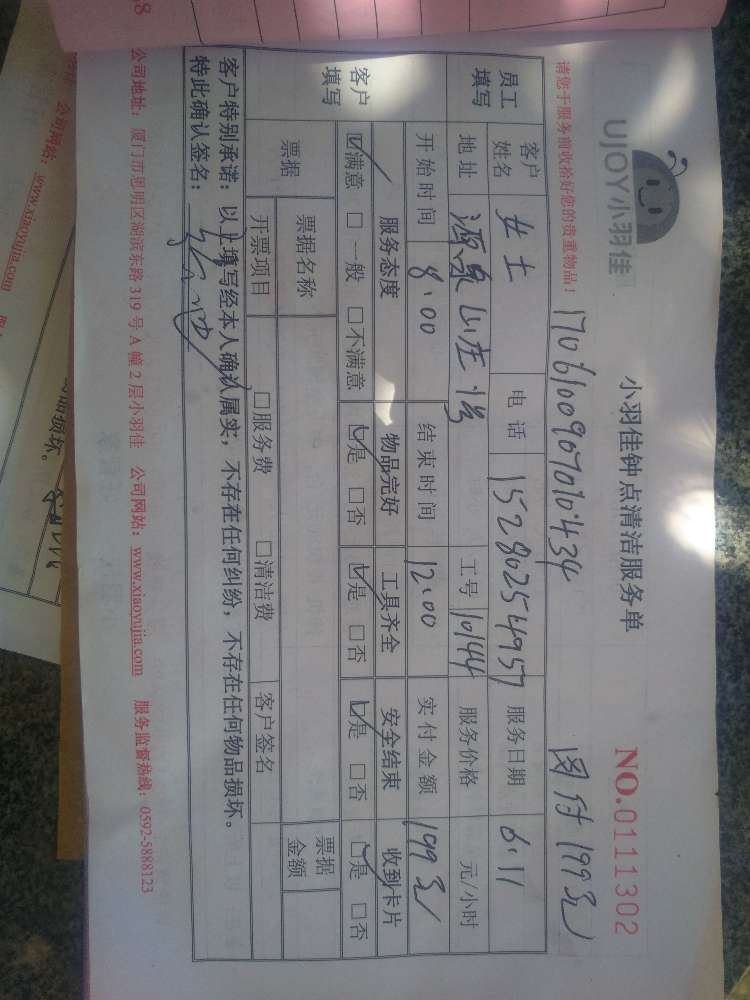 UJOY小羽佳
小羽佳钟点清洁服务单
NO.0111302
请您于服务前收拾好您的贵重物品!
1706100907010434
团付199元
员工填写
客户姓名 女士 电话 15280254957 服务日期 6.11
地址 源泉山庄 工号 10144 服务价格 元/小时
开始时间 8:00 结束时间 12:00 实付金额 199元
客户填写
服务态度 物品完好 工具齐全 安全结束 收到卡片
☑满意 □一般 □不满意 ☑是 □否 ☑是 □否 ☑是 □否 ☑是 □否
票据 票据名称 票据金额
开票项目 □服务费 □清洁费 客户签名
客户特别承诺:以上填写经本人确认属实,不存在任何纠纷,不存在任何物品损坏。
特此确认签名:
公司地址:厦门市思明区湖滨东路319号A幢2层小羽佳 公司网站:www.xiaoyujia.com 服务监督热线:0592-5888123
公司网站:www.xiaoyujia.com
品损坏。